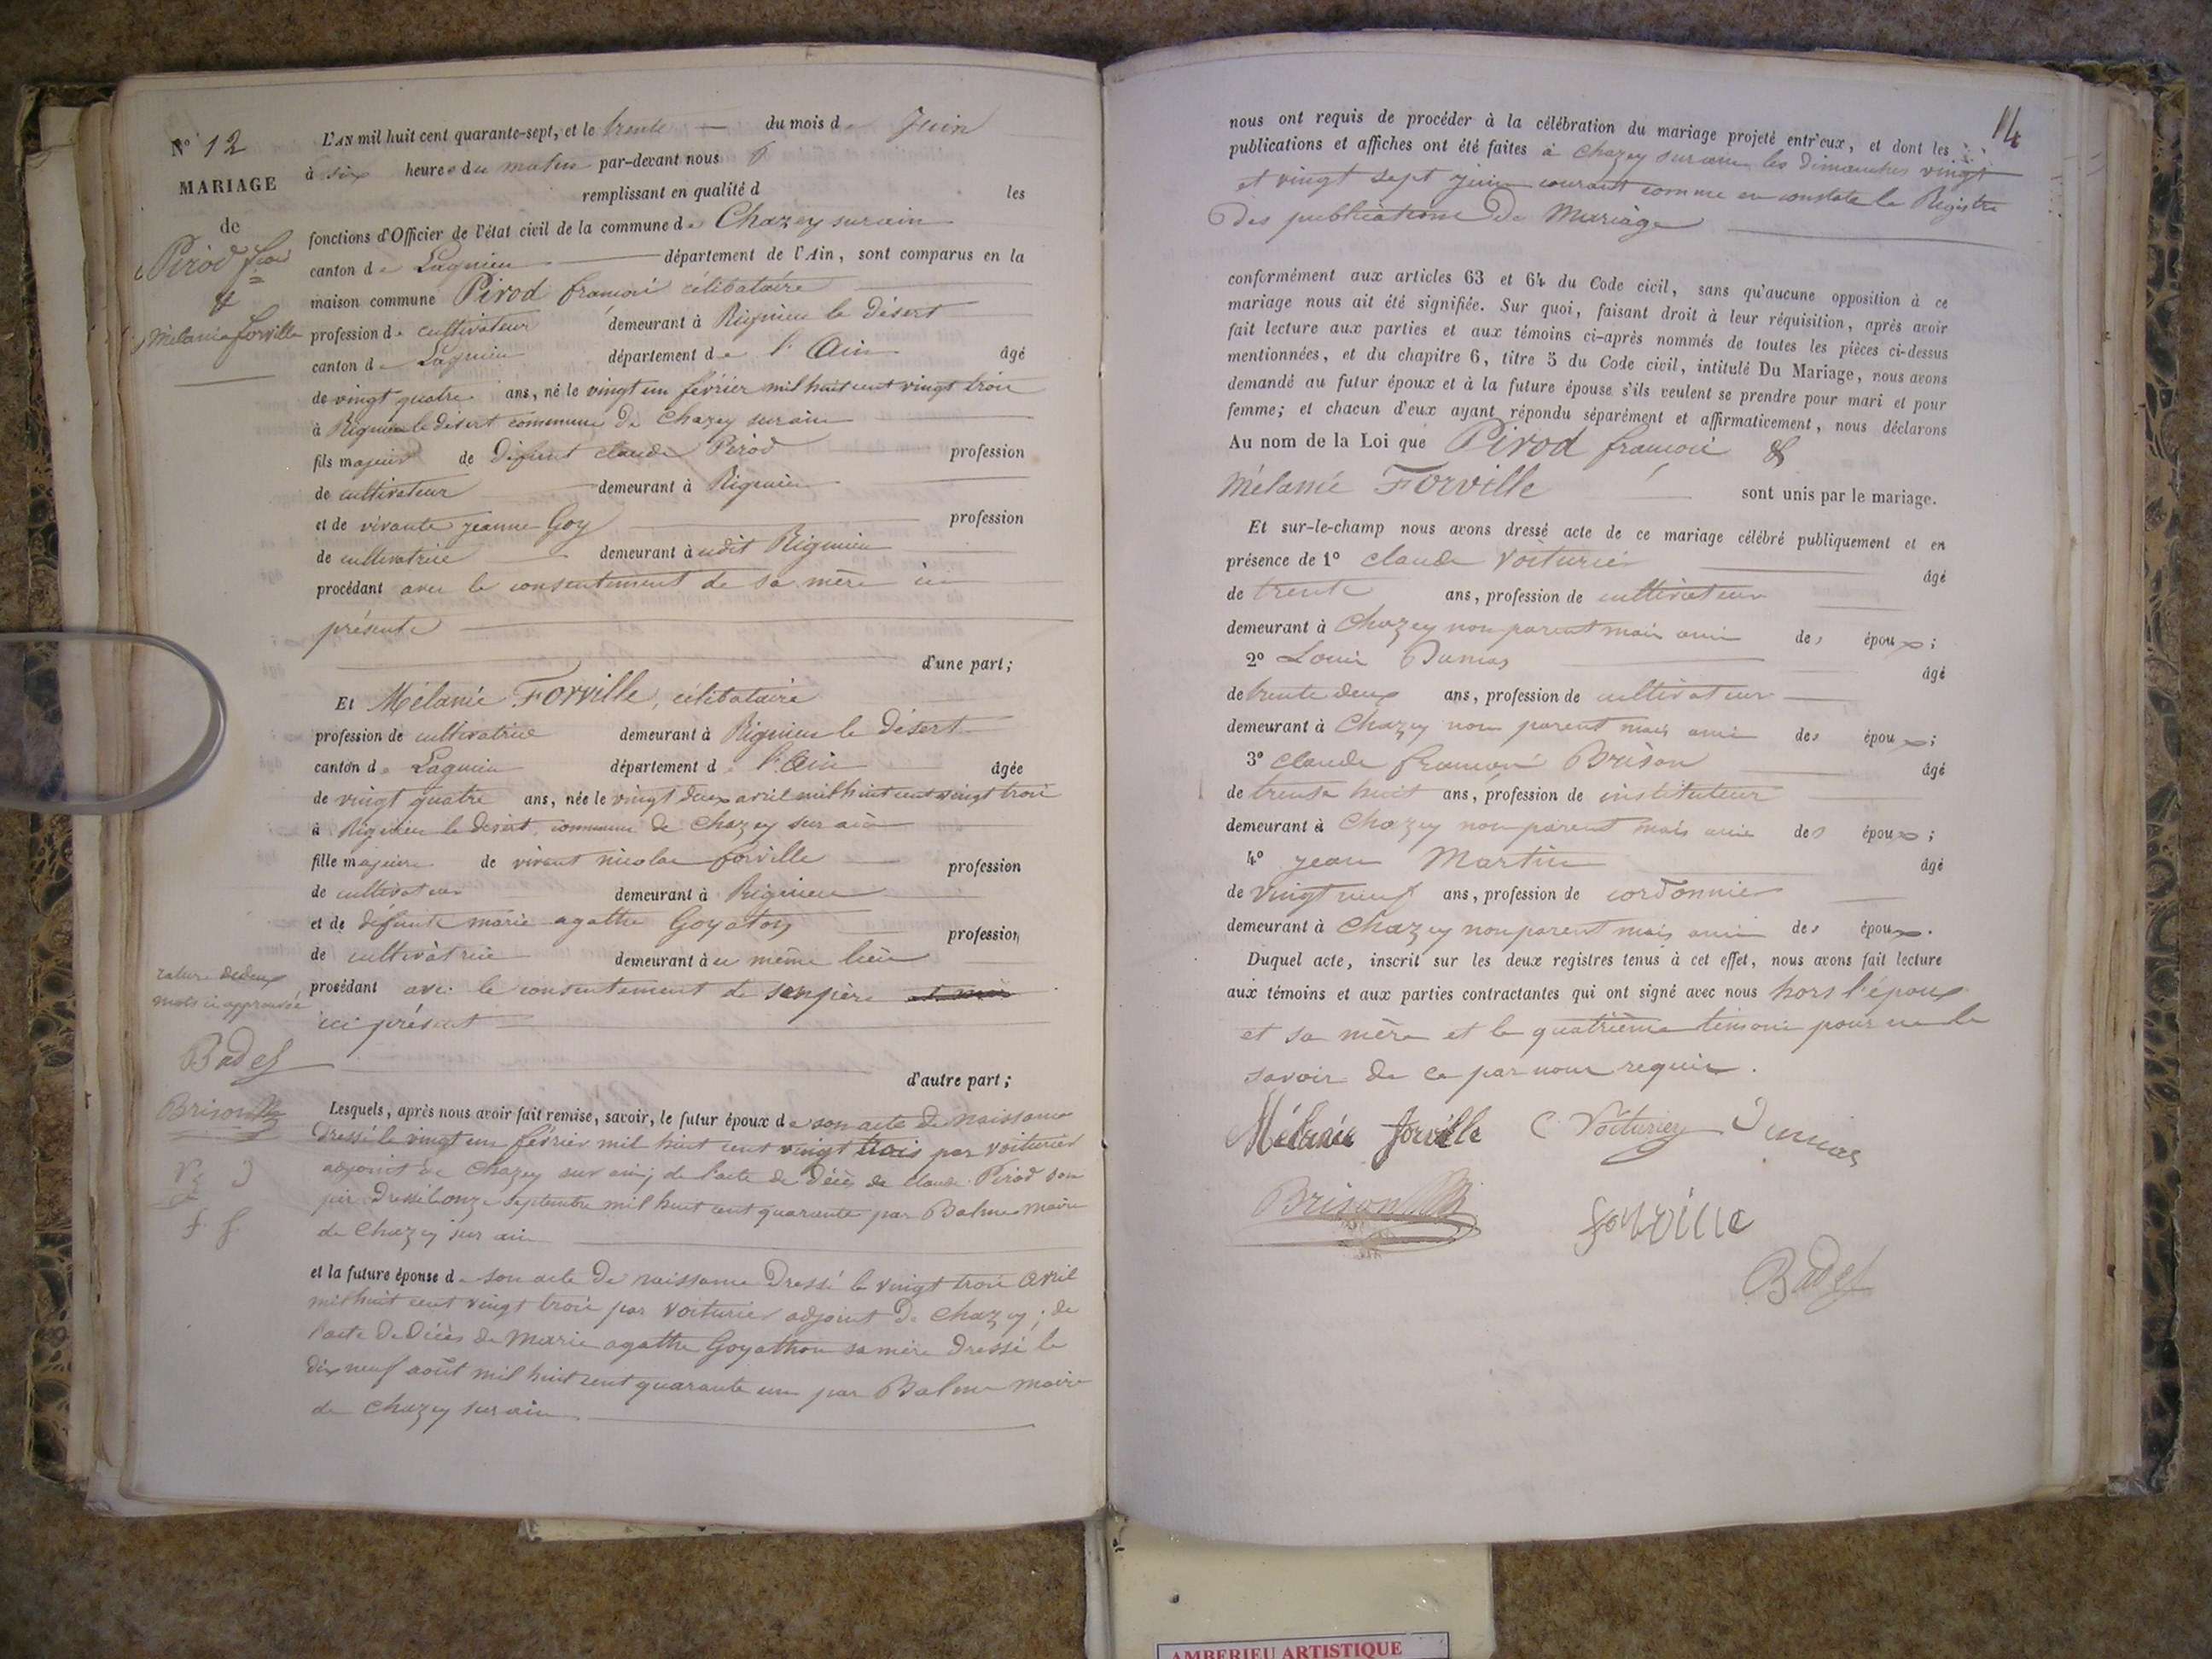 N° 12
MARIAGE
de
Pirod fcois
&
Mélanie forville
L'AN mil huit cent quarante-sept, et le trente du mois de Juin
à six heures du matin par-devant nous
remplissant en qualité d les
fonctions d'Officier de l'état civil de la commune de Chazey sur ain
canton de Lagnieu département de l'Ain, sont comparus en la
maison commune Pirod francois célibataire
profession de cultivateur demeurant à Rignieu le désert
canton de Lagnieu département de l'Ain âgé
de vingt quatre ans, né le vingt un février mil huit cent vingt trois
à Rignieu le désert commune de Chazey sur ain
fils majeur de défunt claude Pirod profession
de cultivateur demeurant à Rignieu
et de vivante jeanne Goy profession
de cultivatrice demeurant à udit Rignieu
procédant avec le consentement de sa mère ici
présente
d'une part;
Et Mélanie Forville, célibataire
profession de cultivatrice demeurant à Rignieu le désert
canton de Lagnieu département d l'Ain âgée
de vingt quatre ans, née le vingt deux avril mil huit cent vingt trois
à Rignieu le désert commune de Chazey sur ain
fille majeure de vivant nicolas forville profession
de cultivateur demeurant à Rignieu
et de défunte marie agathe Goyaton profession
de cultivatrice demeurant à ce même lieu
procédant avec le consentement de son père et mère
ici présent
d'autre part;
rature de deux
mots ici approuvée
Badet
Brison
f. f.
Lesquels, après nous avoir fait remise, savoir, le futur époux de son acte de naissance
dressé le vingt un février mil huit cent vingt trois par voiturier
adjoint de Chazey sur ain; de l'acte de décès de claude Pirod son
père dressé le onze septembre mil huit cent quarante par Balme maire
de Chazey sur ain
et la future épouse de son acte de naissance dressé le vingt trois avril
mil huit cent vingt trois par voiturier adjoint de Chazey; de
l'acte de décès de Marie agathe Goyathon sa mère dressé le
dix neuf août mil huit cent quarante un par Balme maire
de Chazey sur ain
14
nous ont requis de procéder à la célébration du mariage projeté entr'eux, et dont les
publications et affiches ont été faites à Chazey sur ain les dimanches vingt
et vingt sept juin courant comme en constate le Registre
des publications de Mariage
conformément aux articles 63 et 64 du Code civil, sans qu'aucune opposition à ce
mariage nous ait été signifiée. Sur quoi, faisant droit à leur réquisition, après avoir
fait lecture aux parties et aux témoins ci-après nommés de toutes les pièces ci-dessus
mentionnées, et du chapitre 6, titre 5 du Code civil, intitulé Du Mariage, nous avons
demandé au futur époux et à la future épouse s'ils veulent se prendre pour mari et pour
femme; et chacun d'eux ayant répondu séparément et affirmativement, nous déclarons
Au nom de la Loi que Pirod francois &
Mélanie Forville sont unis par le mariage.
Et sur-le-champ nous avons dressé acte de ce mariage célébré publiquement et en
présence de 1° claude Voiturier âgé
de trente ans, profession de cultivateur
demeurant à Chazey non parent mais ami des époux;
2° Louis Dumas âgé
de trente deux ans, profession de cultivateur
demeurant à Chazey non parent mais ami des époux;
3° claude francois Brison âgé
de trente huit ans, profession de instituteur
demeurant à Chazey non parent mais ami des époux;
4° jean Martin âgé
de vingt neuf ans, profession de cordonnier
demeurant à Chazey non parent mais ami des époux.
Duquel acte, inscrit sur les deux registres tenus à cet effet, nous avons fait lecture
aux témoins et aux parties contractantes qui ont signé avec nous hors l'époux
et sa mère et le quatrième témoin pour ne le
savoir de ce par nous requis.
Mélanie forville C Voiturier Dumas
Brison forville
Badet
AMBERIEU ARTISTIQUE